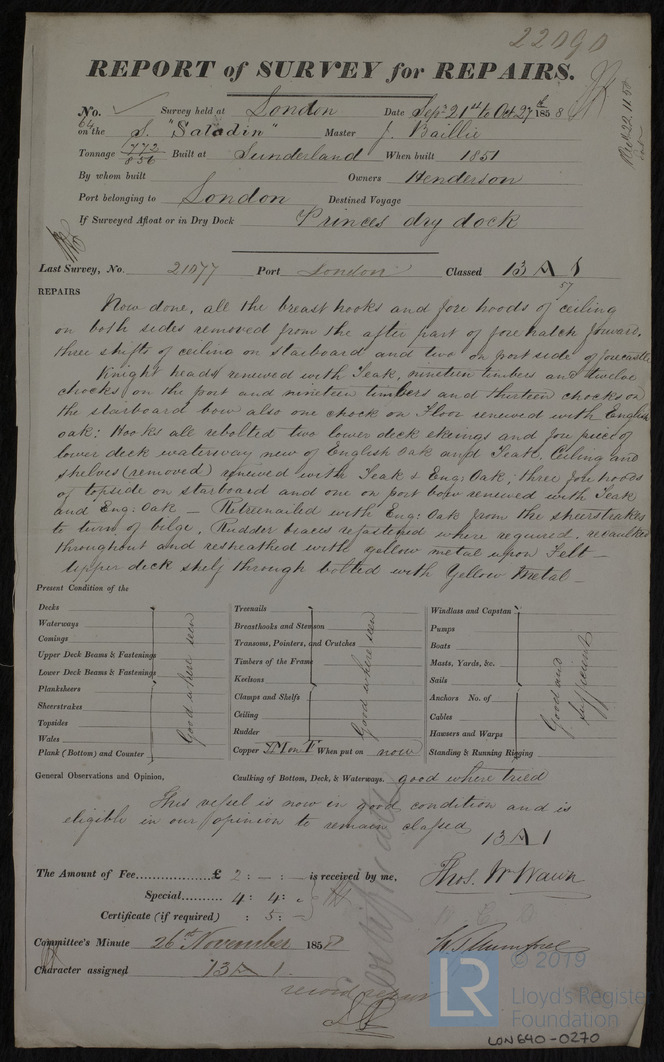 22090
REPORT of SURVEY for REPAIRS.
No. Survey held at London Date Sepr 21st to Oct 27th 1858
64 on the S. "Saladin" Master J. Baillie
Tonnage 772/856 Built at Sunderland When built 1851
By whom built Owners Henderson
Port belonging to London Destined Voyage
If Surveyed Afloat or in Dry Dock Princes dry dock
Last Survey, No. 21077 Port London Classed 13 A 1
57
REPAIRS
Now done, all the breast hooks and fore hoods of ceiling
on both sides removed from the after part of fore hatch forward.
three shifts of ceiling on starboard and two on port side of forecastle
Knight heads renewed with Teak, nineteen timbers and twelve
chocks on the port and nineteen timbers and thirteen chocks on
the starboard bow also one chock on Floor renewed with English
oak: Hooks all rebolted two lower deck ekeings and fore piece of
lower deck waterway new of English Oak and Teak. Ceiling and
shelves (removed) renewed with Teak & Eng: Oak; three fore hoods
of topside on starboard and one on port bow renewed with Teak
and Eng: Oak — Retreenailed with Eng: Oak from the sheerstrakes
to turn of bilge. Rudder braces refastened where required. recaulked
throughout and resheathed with yellow metal upon Felt —
Upper deck shelf through bolted with Yellow Metal —
Present Condition of the
Decks
Waterways
Comings
Upper Deck Beams & Fastenings
Lower Deck Beams & Fastenings
Planksheers
Sheerstrakes
Topsides
Wales
Plank (Bottom) and Counter
Good where seen
Treenails
Breasthooks and Stemson
Transoms, Pointers, and Crutches
Timbers of the Frame
Keelsons
Clamps and Shelfs
Ceiling
Rudder
Copper YM on F When put on now
Good where seen
Windlass and Capstan
Pumps
Boats
Masts, Yards, &c.
Sails
Anchors No. of
Cables
Hawsers and Warps
Standing & Running Rigging
Good and sufficient
General Observations and Opinion, Caulking of Bottom, Deck, & Waterways. good where tried
This vessel is now in good condition and is
eligible in our opinion to remain classed
13 A 1
The Amount of Fee £ 2 : — : — is received by me, Thos. W Wawn
Special 4 : 4 : —
Certificate (if required) : 5 : —
Committee's Minute 26th November 1858
Character assigned 13 A 1
© 2019
LR Lloyd's Register
Foundation
LON640-0270